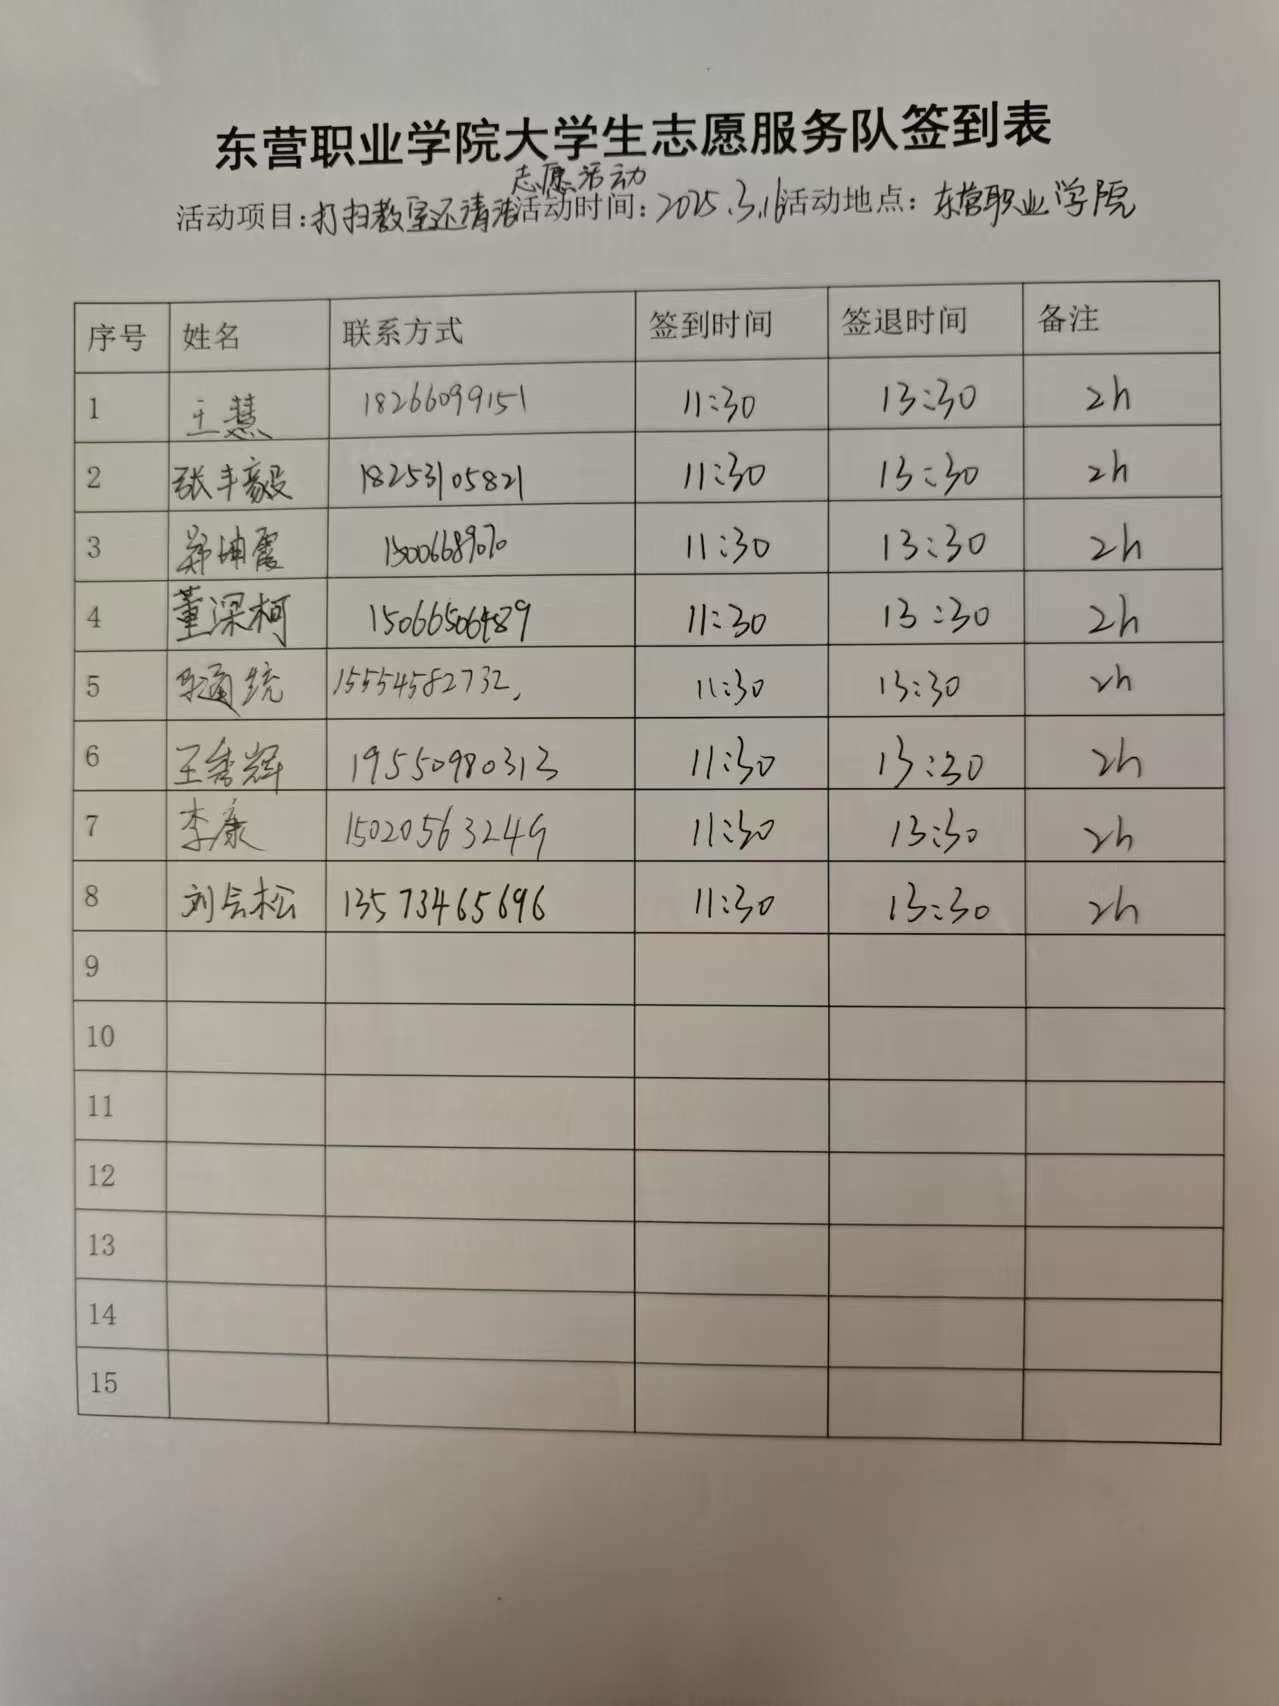 东营职业学院大学生志愿服务队签到表
志愿活动
活动项目:打扫教室还清洁活动时间:2025.3.16活动地点:东营职业学院
序号 姓名 联系方式 签到时间 签退时间 备注
1 王慧 18266099151 11:30 13:30 2h
2 张丰毅 18253105821 11:30 13:30 2h
3 郑坤霞 11:30 13:30 2h
4 董深柯 15066506489 11:30 13:30 2h
5 15554582732, 11:30 13:30 2h
6 王秀辉 19550980313 11:30 13:30 2h
7 李康 15020563249 11:30 13:30 2h
8 刘会松 13573465696 11:30 13:30 2h
9
10
11
12
13
14
15